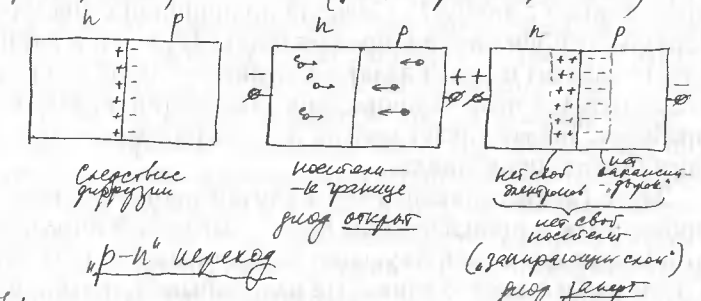 n p
n p
n p
+ -
+ -
+ -
+ -
+ -
+ -
- +
+ -
++ --
++ --
++ --
++ --
++ --
++ --
Следствие
диффузии
„p-n“ переход
носители
→ к границе
диод открыт
нет своб
электронов
нет
вакансий-
„дырок“
нет своб
носителей
(„запирающий слой“)
диод заперт